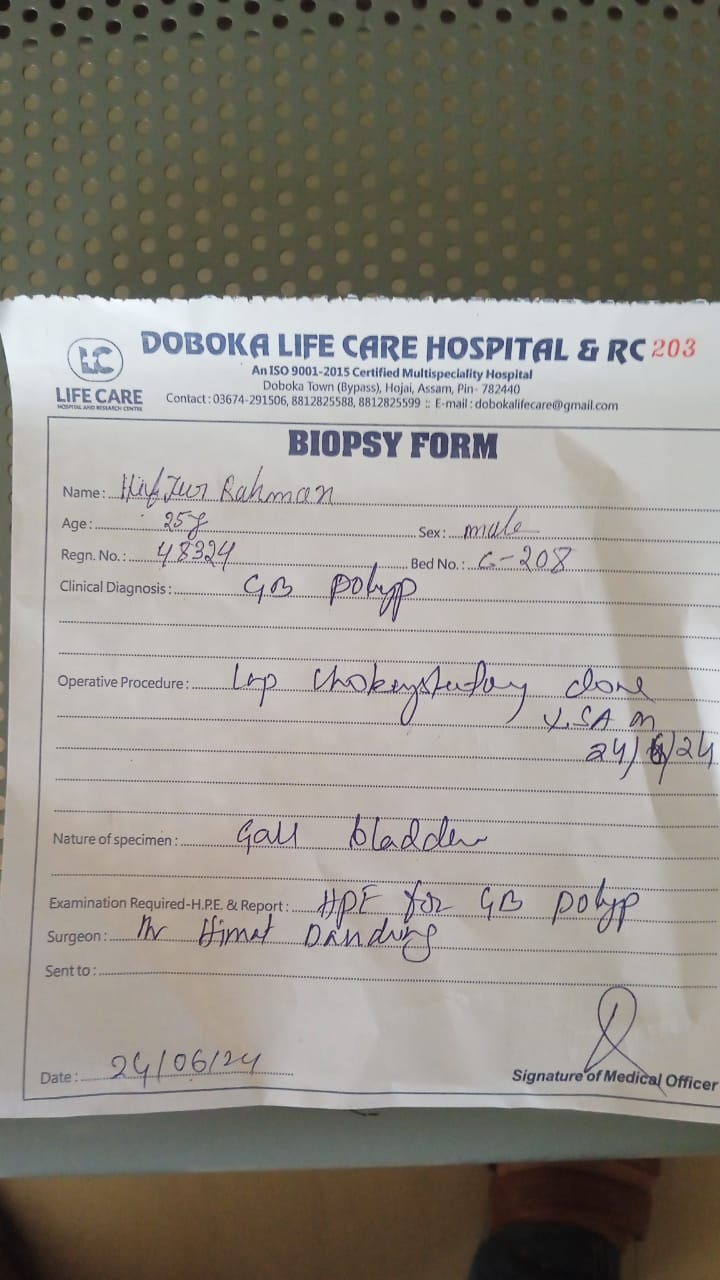 LC
LIFE CARE
HOSPITAL AND RESEARCH CENTRE
DOBOKA LIFE CARE HOSPITAL & RC 203
An ISO 9001-2015 Certified Multispeciality Hospital
Doboka Town (Bypass), Hojai, Assam, Pin- 782440
Contact : 03674-291506, 8812825588, 8812825599 :: E-mail : dobokalifecare@gmail.com
BIOPSY FORM
Name : Rahman
Age : 25y Sex : male
Regn. No. : 48324 Bed No. : C-208
Clinical Diagnosis : GB polyp
Operative Procedure : Lap done
SA on
24/6/24
Nature of specimen : Gall bladder
Examination Required-H.P.E. & Report : HPE for GB polyp
Surgeon : Dr Himat
Sent to :
Date : 24/06/24 Signature of Medical Officer